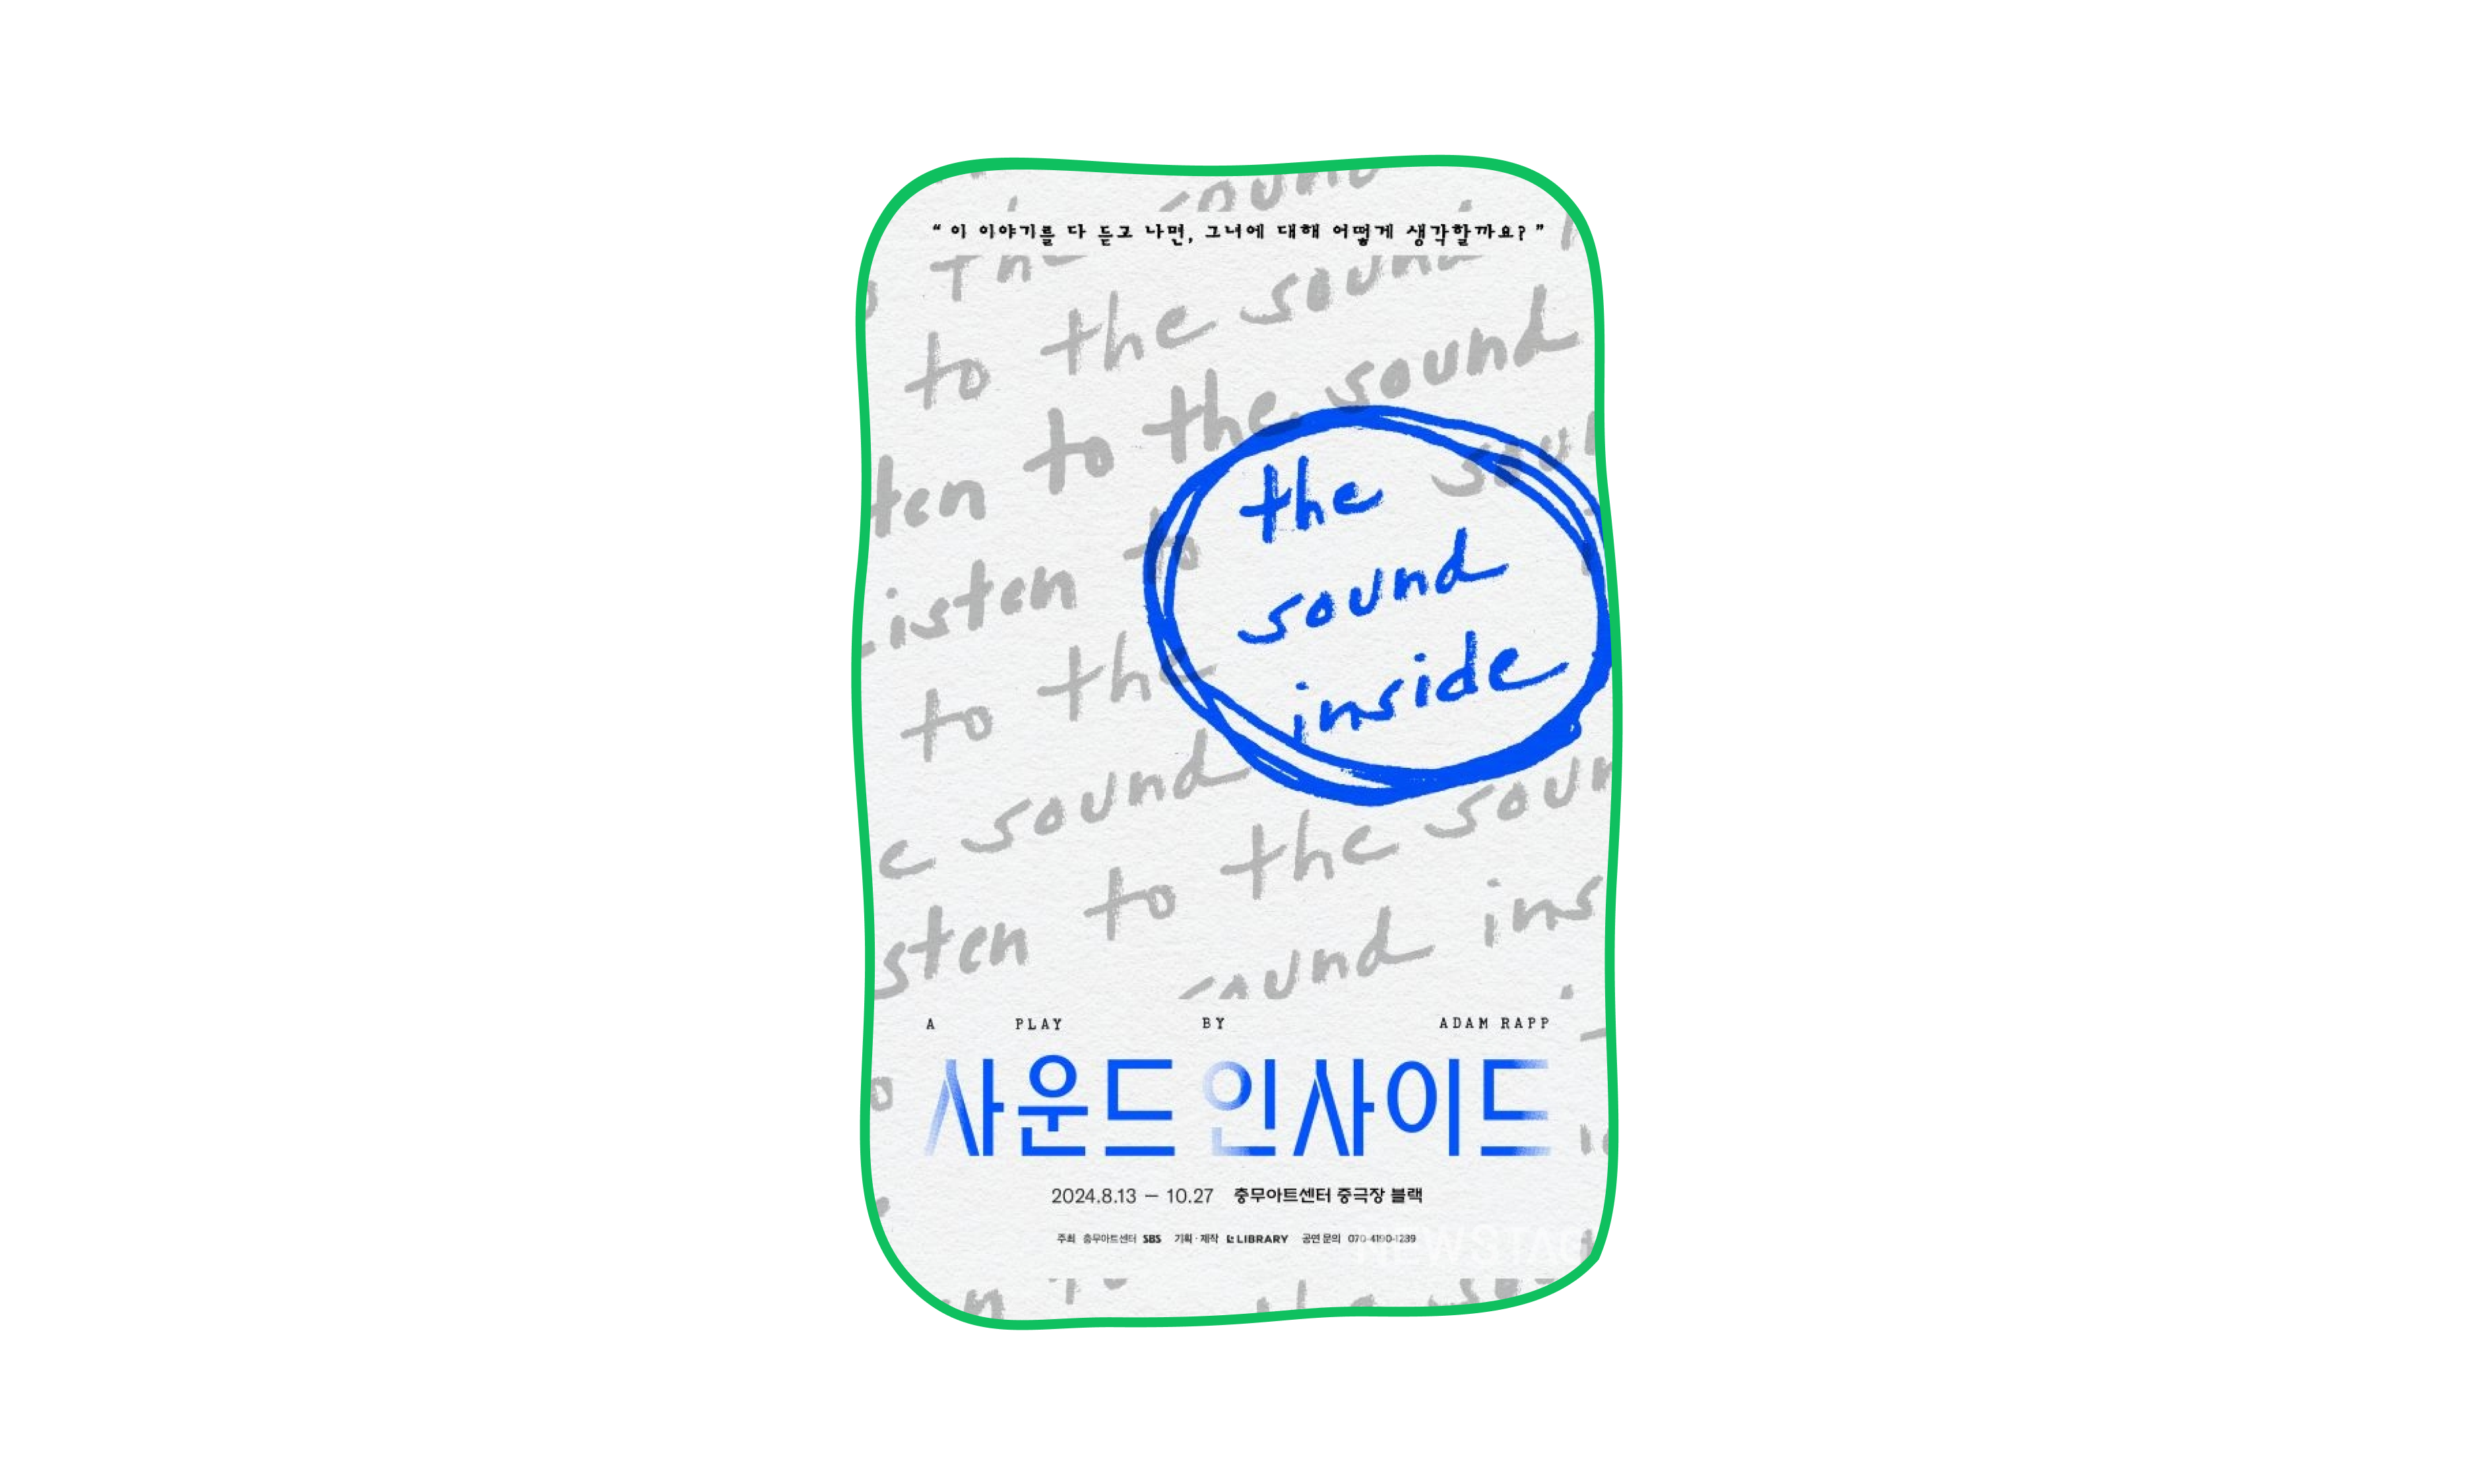 “ 이 이야기를 다 듣고 나면, 그녀에 대해 어떻게 생각할까요? ”
to the sound
to the sound
ten
the
sound
inside
listen to
to the
e sound
to the soun
sten
sound ins
A PLAY BY ADAM RAPP
사운드 인사이드
2024.8.13 – 10.27 충무아트센터 중극장 블랙
주최 충무아트센터 SBS 기획·제작 LIBRARY 공연 문의 070-4190-1289